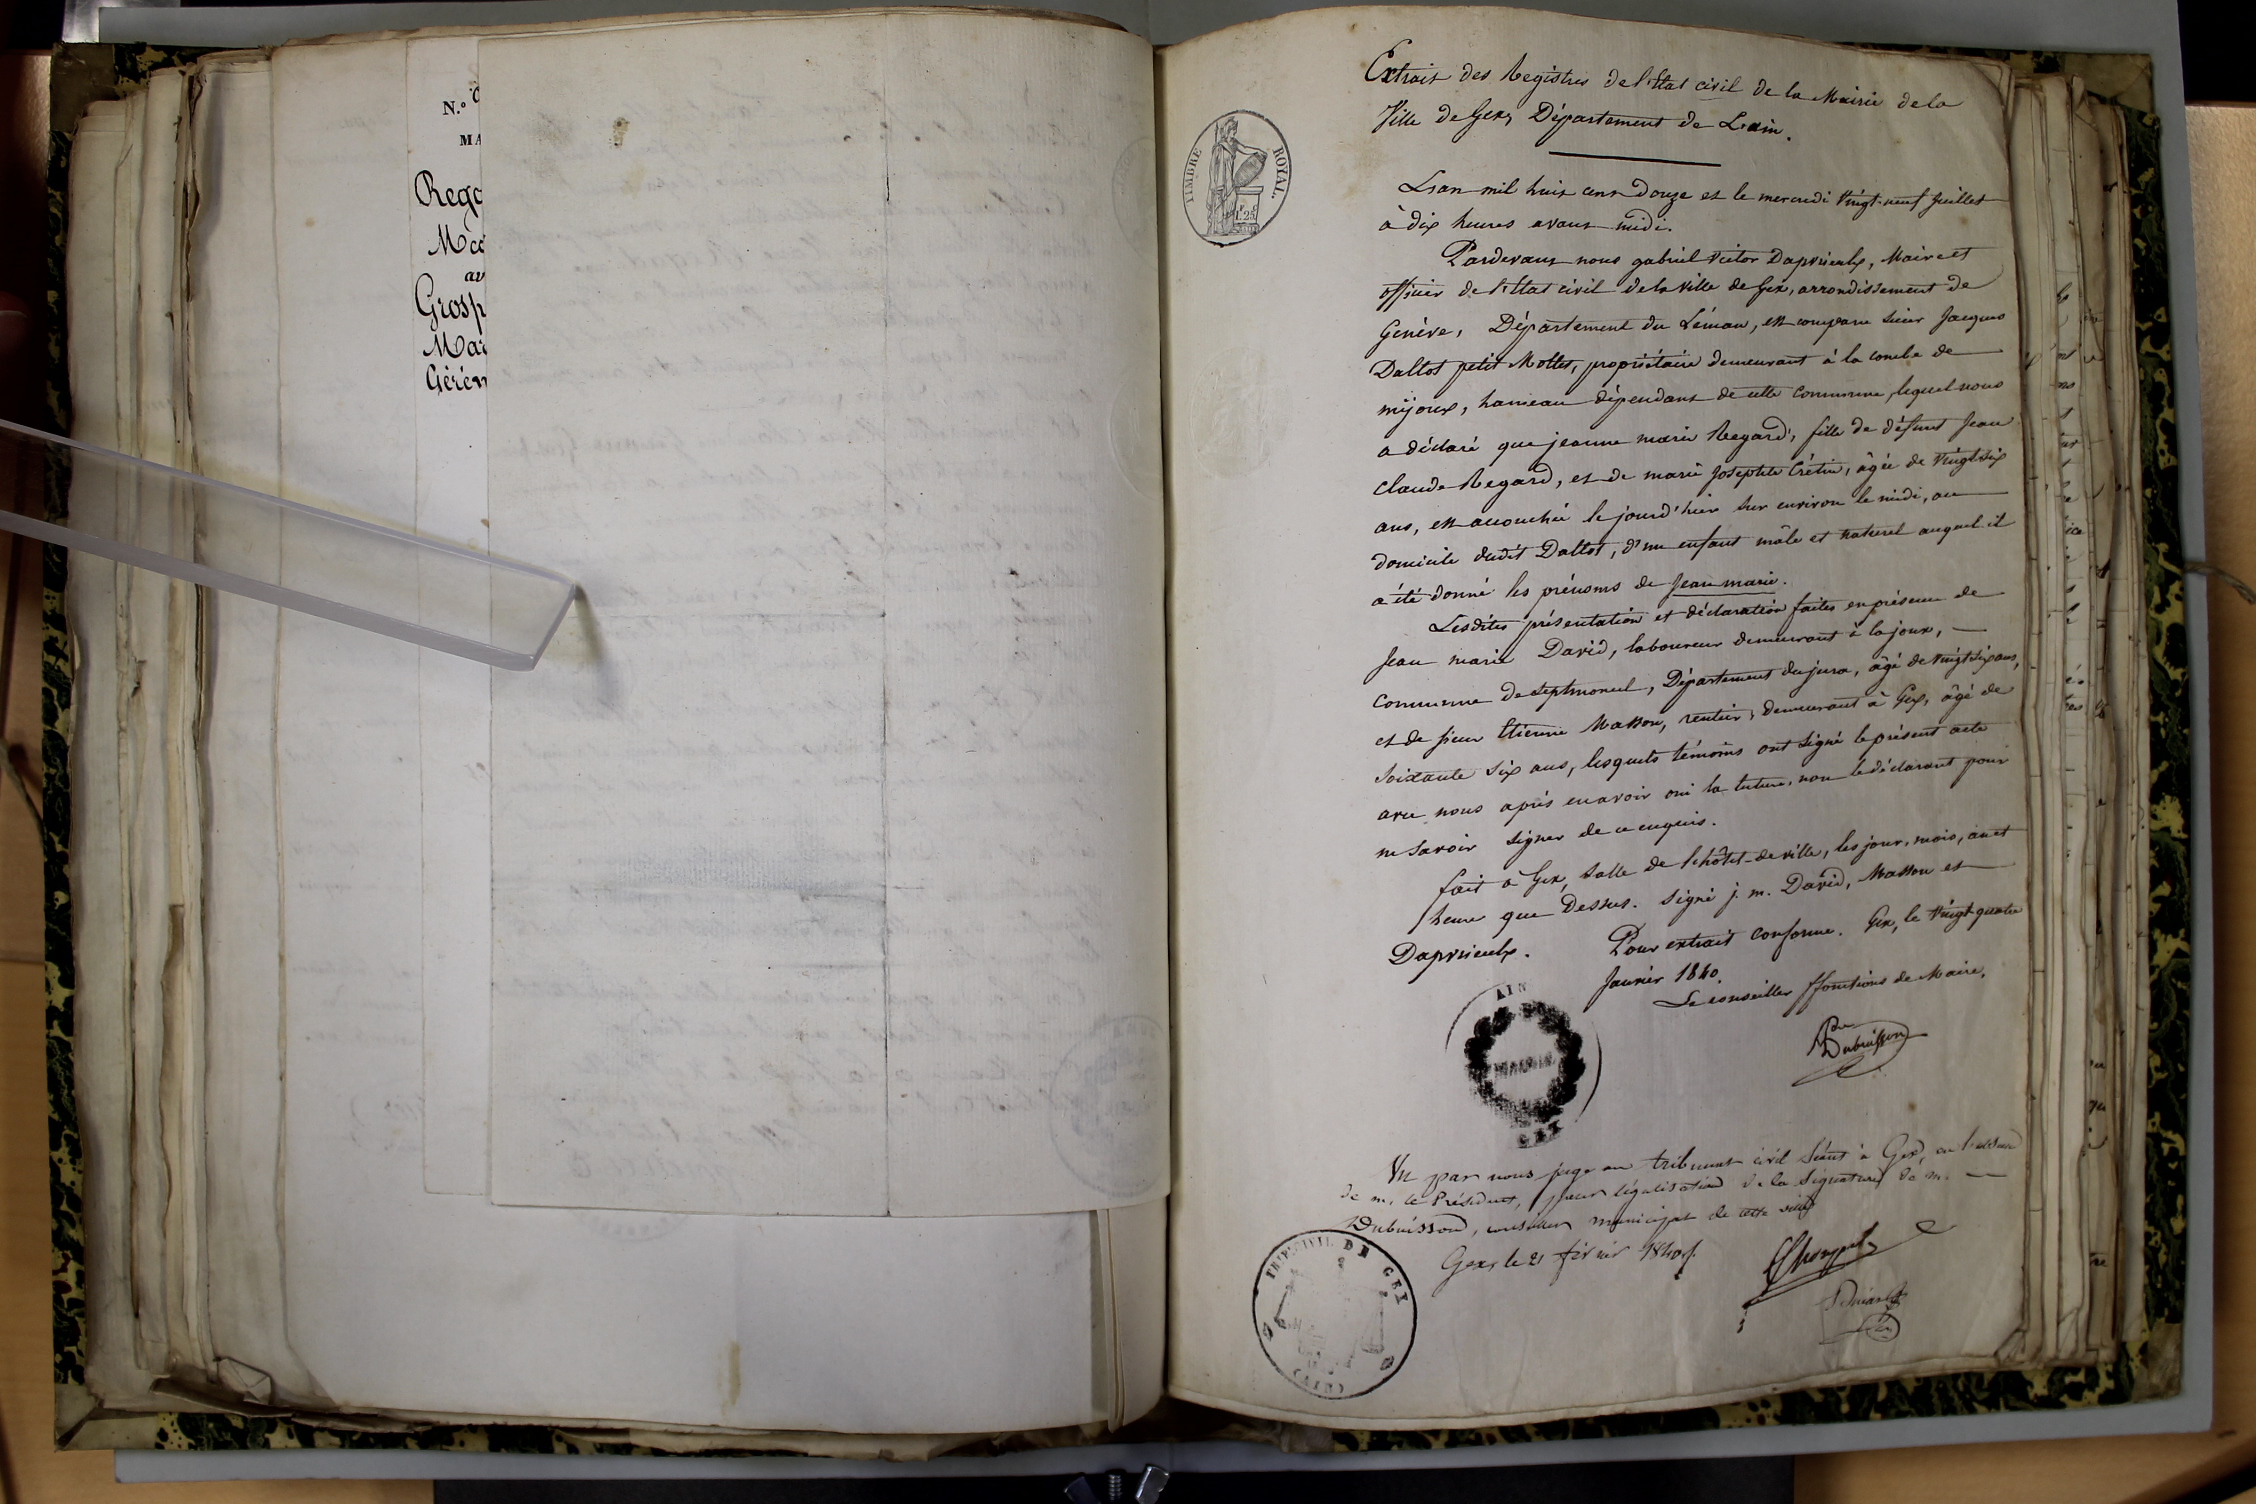 N.o
MA
Rega
Mar
Extrait des Registres de l'Etat civil de la Mairie de la
Ville de Gex, Département de L'ain.
TIMBRE ROYAL.
L'an mil huit cent Douze et le mercredi Vingt-neuf juillet
à dix heures avant midi.
Pardevant nous gabriel victor Daprvieulx, Maire et
officier de l'Etat civil de la ville de Gex, arrondissement de
Genève, Département du Léman, est comparu sieur Jacques
Daltot petit Mottet, propriétaire demeurant à la combe de
mijoux, hameau dépendant de cette commune, lequel nous
a déclaré que jeanne marie Regard, fille de défunt Jean
Claude Regard, et de marie Josephte Crétin, âgée de Vingt six
ans, est accouchée le jourd'hier sur environ le midi, au
domicile dudit Daltot, d'un enfant mâle et naturel auquel il
a été donné les prénoms de Jean marie.
Lesdites présentation et déclaration faites en présence de
Jean marie David, laboureur demeurant à la joux,
commune de septmoncel, Département du jura, âgé de Vingt six ans,
et de sieur Etienne Masson, rentier, demeurant à Gex, âgé de
soixante six ans, lesquels témoins ont signé le présent acte
avec nous après en avoir oui la lecture, non le déclarant pour
ne savoir signer de ce enquis.
fait à Gex, salle de l'hôtel-de-ville, les jour, mois, an et
heure que Dessus. Signé j. m. David, Masson et
Daprvieulx. Pour extrait conforme. Gex, le Vingt-quatre
Janvier 1840.
Le conseiller ffonctions de Maire,
Dubuisson
AIN
MAIRIE
GEX
Vu par nous juge au tribunal civil séant à Gex, en l'absence
de m. le Président, pour légalisation de la signature de m.
Dubuisson, conseiller municipal de cette ville
Gex, le 21 février 1840.
TRIB. CIVIL DE GEX
(AIN)